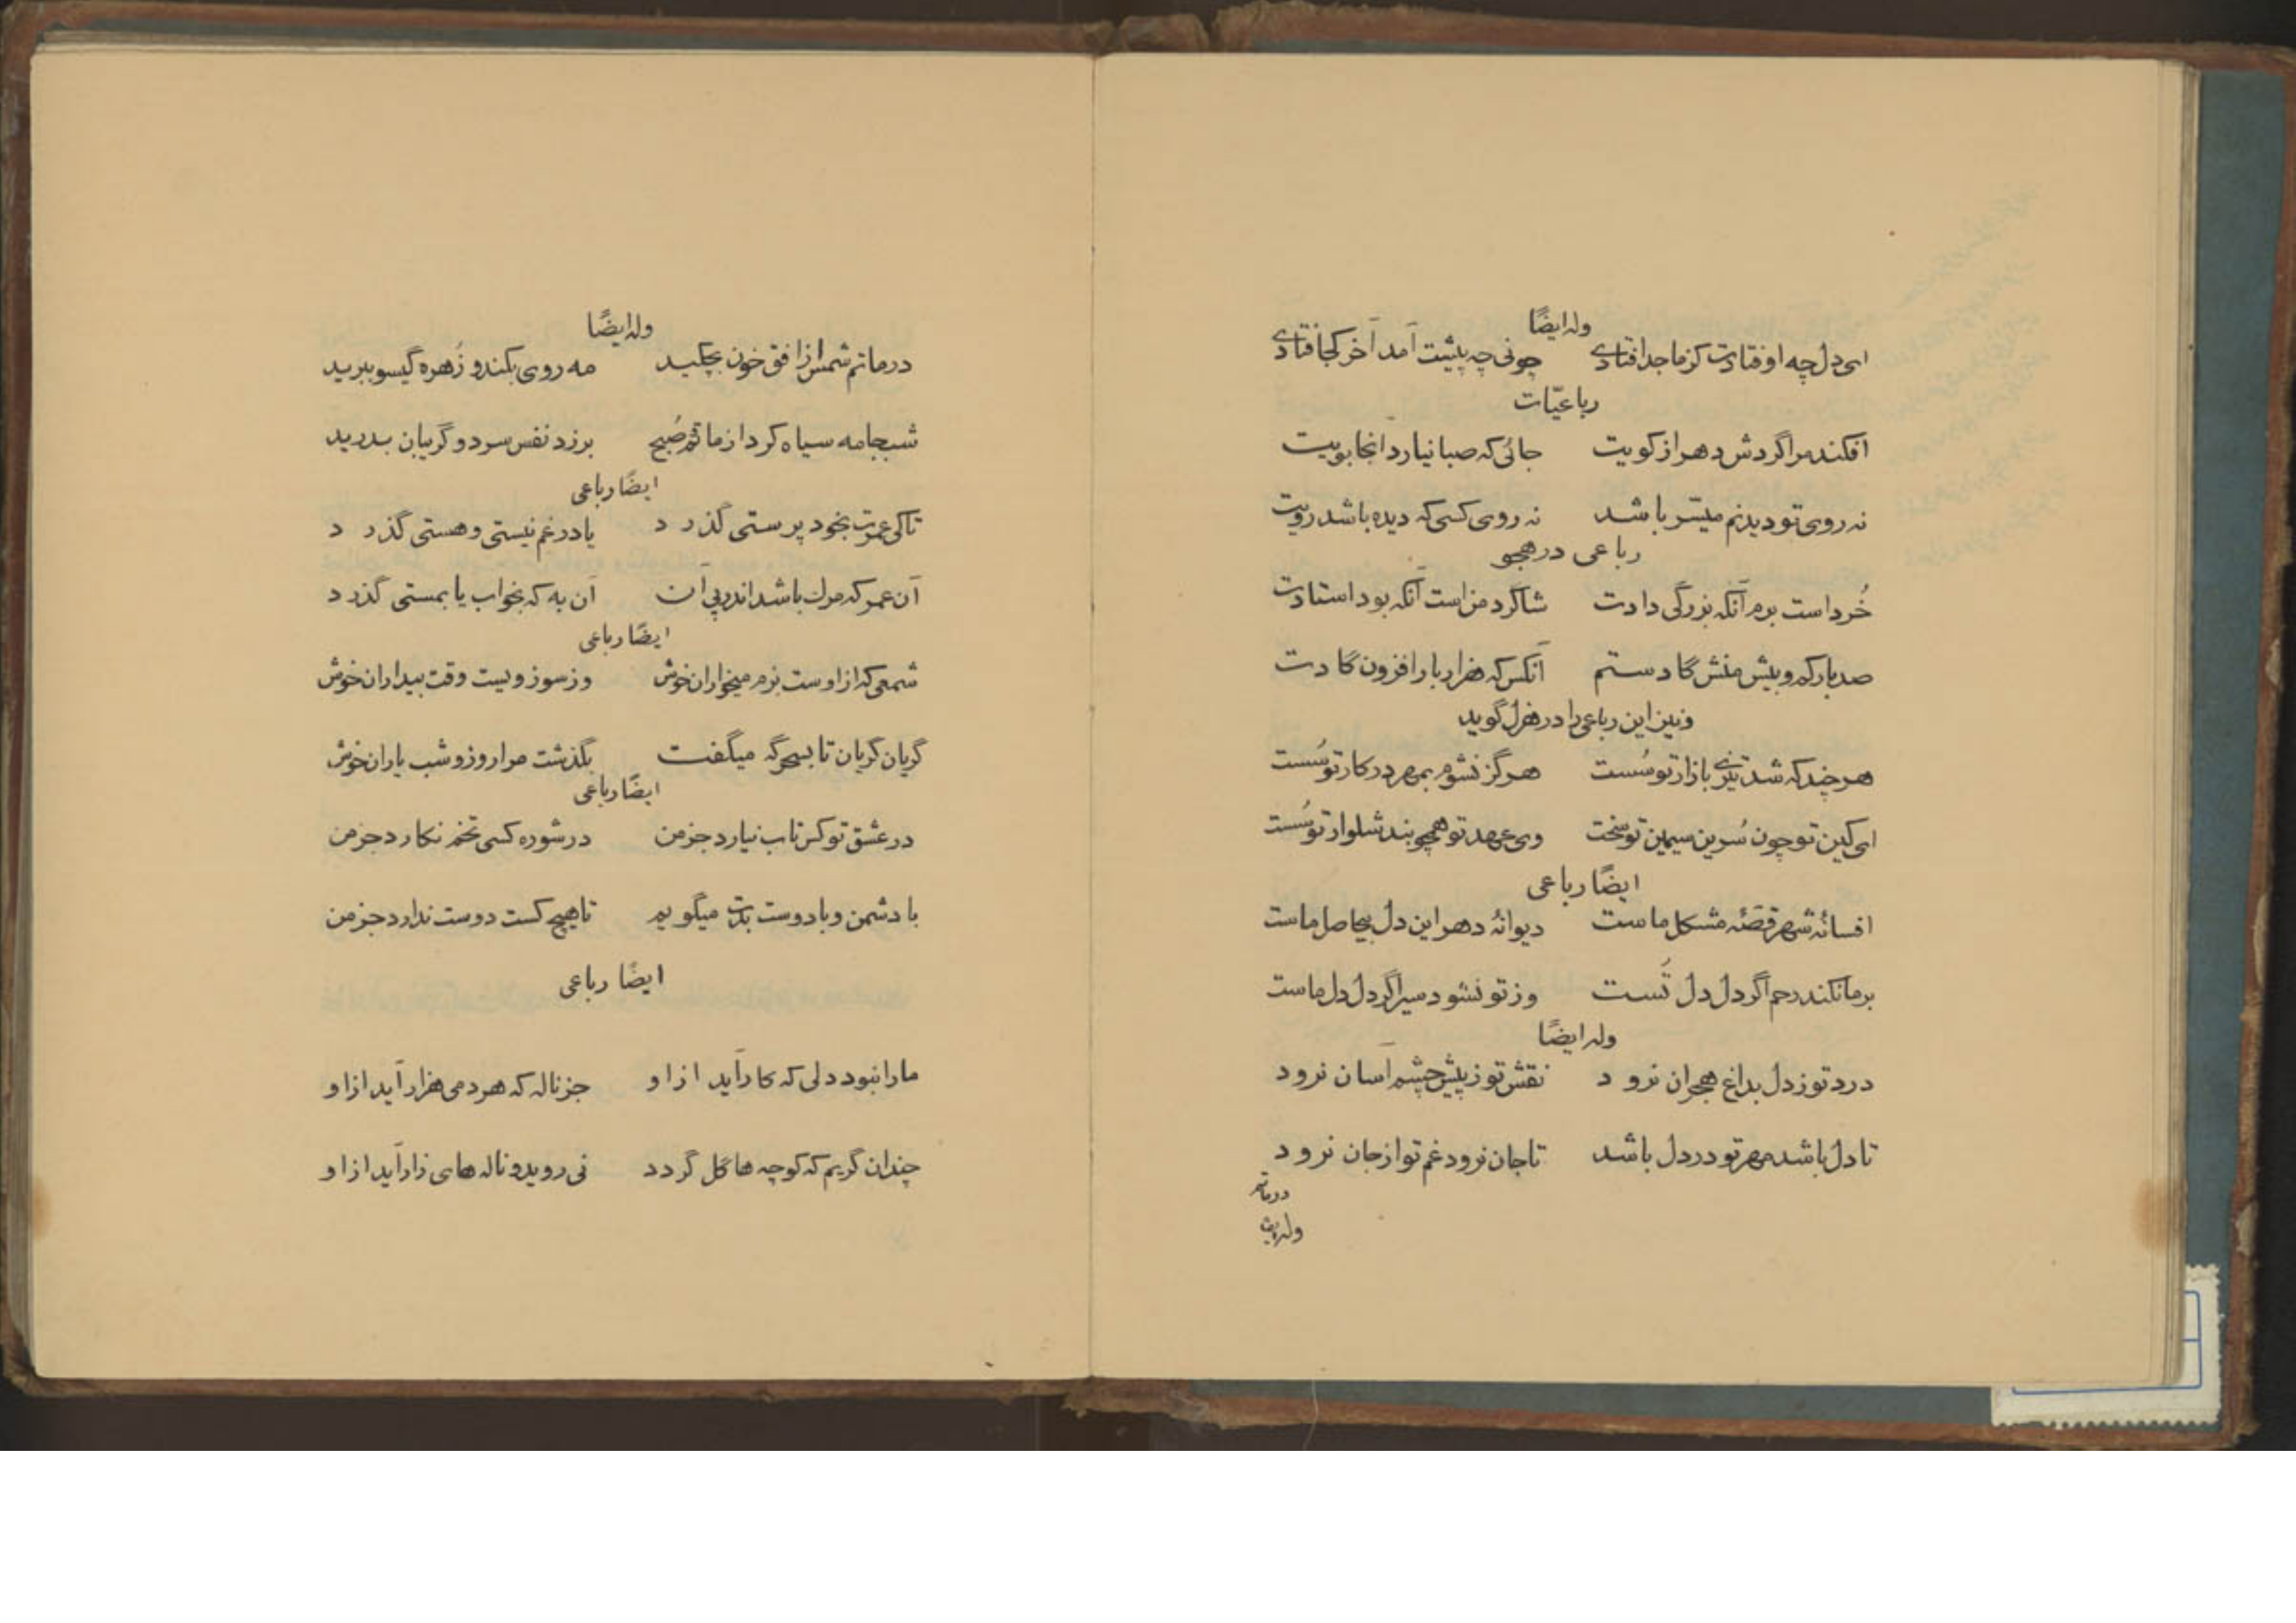 وله ایضًا
ای دل چه اوفتادت کز ما جدا فتادی چونی چه پیشت آمد آخر کجا فتادی
رباعیّات
افکند مرا گردش دهر از کویت جائی که صبا نیارد آنجا بویت
نه روی تو دیدنم میسّر باشد نه روی کسی که دیده باشد رویت
رباعی در هجو
خُرد است برم آنکه بزرگی دادت شاگرد من است آنکه بود استادت
صد بار کم و بیش منش گادستم آنکس که هزار بار افزون گادت
و نیز این رباعی را در هزل گوید
هر چند که شد تیزی بازار تو سُست هرگز نشوم بمهر در کار تو سُست
ای کین تو چون سُرین سیمین تو سخت وی عهد تو همچو بند شلوار تو سُست
ایضًا رباعی
افسانهٔ شهر قصّهٔ مشکل ماست دیوانهٔ دهر این دل بیحاصل ماست
بر ما نکند رحم اگر دل دل تُست وز تو نشود سیر اگر دل دل ماست
وله ایضًا
درد تو ز دل بداغ هجران نرود نقش تو ز پیش چشم آسان نرود
تا دل باشد مهر تو در دل باشد تا جان نرود غم تو از جان نرود
در ماتم
وله ایضًا
در ماتم شمس از افق خون بچکید مه روی بکند و زُهره گیسو ببرید
شب جامه سیاه کرد از ماتم صُبح برزد نفس سرد و گریبان بدرید
ایضًا رباعی
تا کی عمرت بخود پرستی گذرد یا در غم نیستی و هستی گذرد
آن عمر که مرك باشد اندر پی آن آن به که بخواب یا بمستی گذرد
ایضًا رباعی
شمعی که از اوست بزم میخواران خوش وز سوز ویست وقت بیداران خوش
گریان گریان تا بسحرگه میگفت بگذشت مرا روز و شب یاران خوش
ایضًا رباعی
در عشق تو کس تاب نیارد جز من در شوره کسی تخم نکارد جز من
با دشمن و با دوست بدت میگویم تا هیچ کست دوست ندارد جز من
ایضًا رباعی
ما را نبود دلی که کار آید از او جز ناله که هر دمی هزار آید از او
چندان گریم که کوچه ها گل گردد نی روید و ناله های زار آید از او